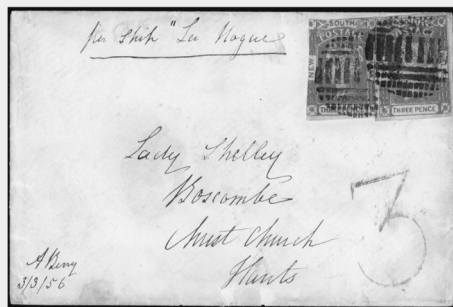 per Ship "La Hogue"
NEW SOUTH
POSTAGE
THREE PENCE
THREE PENCE
Lady Shelley
Boscombe
Christ Church
Hants
3
A Berry
3/3/56